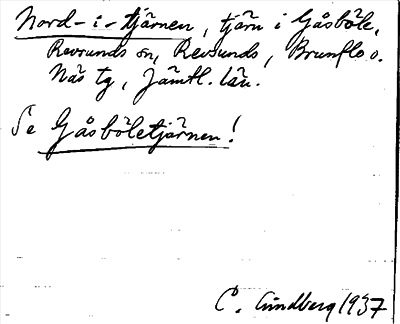 Nord-i-tjärnen, tjärn i Gåsböle,
Revsunds sn, Revsunds, Brunflo o.
Näs tg, Jämtl. län.
Se Gåsböletjärnen!
C. Lundberg 1937